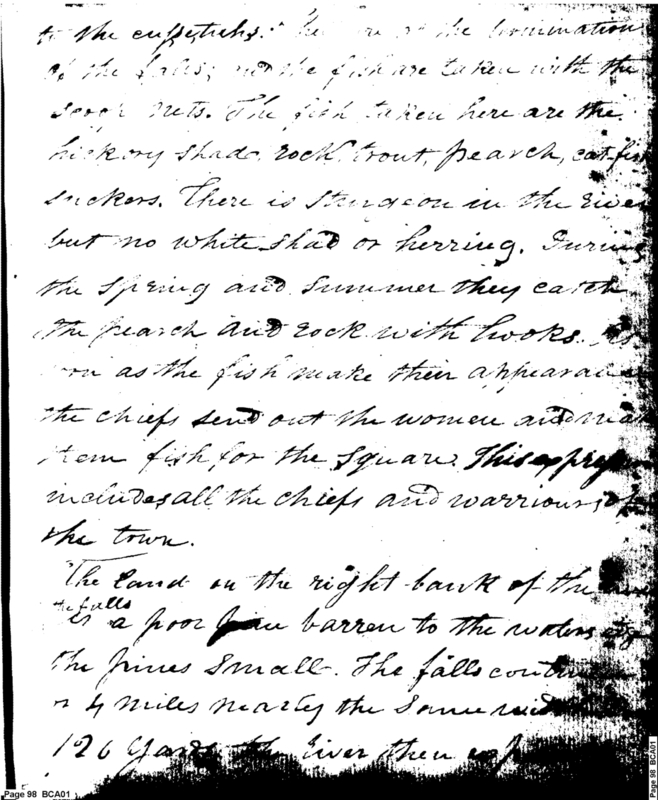 to the cussetuhs. at the termination
of the falls; and the fish are taken with the
scoop nets. The fish taken here are the
hickory shad, rock, trout, pearch, cat fish
suckers. There is sturgeon in the river
but no white shad or herring. During
the spring and summer they catch
the pearch and rock with hooks. As
soon as the fish make their appearance
the chiefs send out the women and make
them fish for the square. This expression
includes all the chiefs and warriours of
the town.
The land on the right bank of the
the falls
is a poor pine barren to the waters edge
the pines small. The falls continue
or 4 miles nearly the same width
120 yards the river then
Page 98 BCA01
Page 98 BCA01